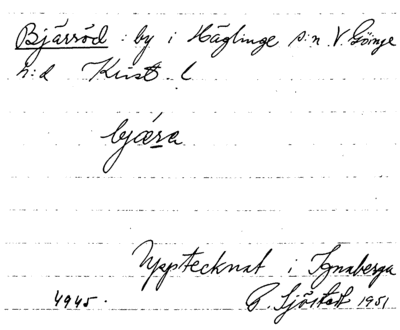 Bjärröd : by i Häglinge s:n V. Göinge
h:d Krist. l
bjæra
Upptecknat i Ignaberga
4945. P. Sjöstedt 1951